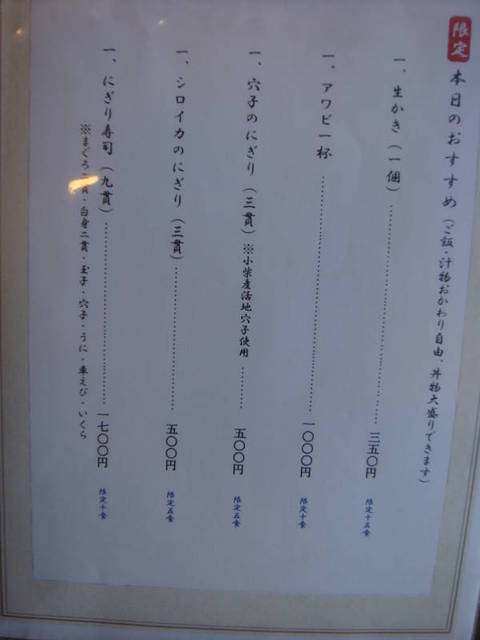 限定 本日のおすすめ（ご飯・汁物おかわり自由、丼物大盛りできます）
一、生かき（一個） 三五〇円 限定十五食
一、アワビ一杯 一〇〇〇円 限定十食
一、穴子のにぎり（三貫）※小柴産活地穴子使用 五〇〇円 限定五食
一、シロイカのにぎり（三貫） 五〇〇円 限定五食
一、にぎり寿司（九貫） 一七〇〇円 限定十食
※まぐろ二貫・白身二貫・玉子・穴子・うに・車えび・いくら